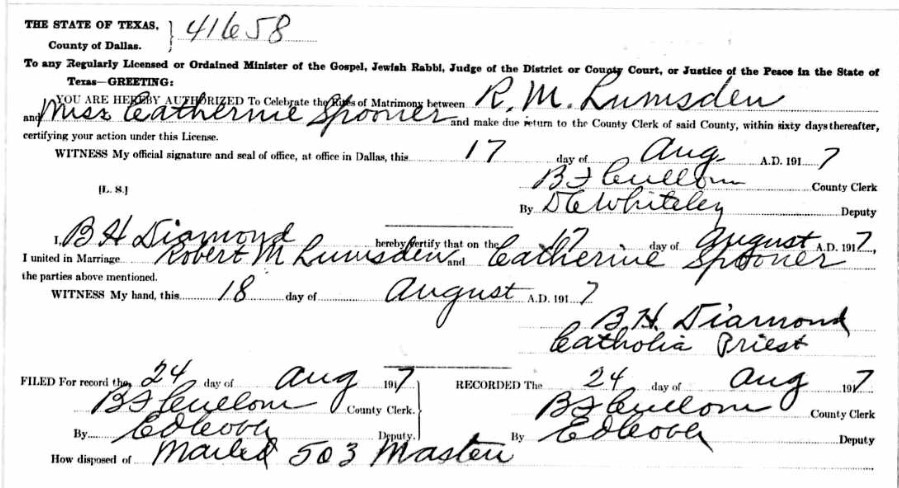 THE STATE OF TEXAS, } 41658
County of Dallas.
To any Regularly Licensed or Ordained Minister of the Gospel, Jewish Rabbi, Judge of the District or County Court, or Justice of the Peace in the State of
Texas—GREETING:
YOU ARE HEREBY AUTHORIZED To Celebrate the Rites of Matrimony between R. M. Lumsden
and Miss Catherine Spooner and make due return to the County Clerk of said County, within sixty days thereafter,
certifying your action under this License.
WITNESS My official signature and seal of office, at office in Dallas, this 17 day of Aug. A.D. 1917
[L. S.] B F Cullom County Clerk
By D C Whiteley Deputy
I, B H Diamond hereby certify that on the 17 day of August A.D. 1917,
I united in Marriage Robert M Lumsden and Catherine Spooner
the parties above mentioned.
WITNESS My hand, this 18 day of August A.D. 1917
B. H. Diamond
Catholic Priest
FILED For record the 24 day of Aug 1917 RECORDED The 24 day of Aug 1917
B F Cullom County Clerk. B F Cullom County Clerk
By Deputy. By Deputy
How disposed of Mailed 503 Masten